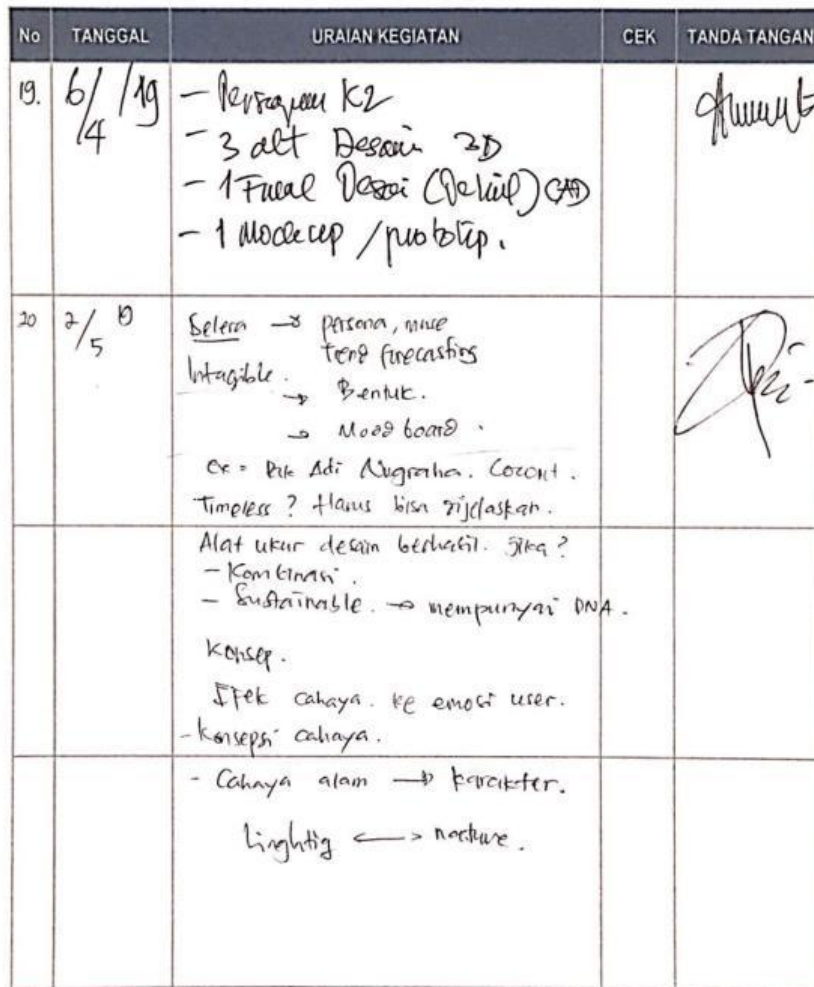 No TANGGAL URAIAN KEGIATAN CEK TANDA TANGAN
19. 6/4/19 - Persiapan K2
- 3 alt Desain 3D
- 1 Final Desai (Detail) CAD
- 1 Mockup / prototip.
20 2/5 19 Selera → persona, muse
trend forecasting
Intagible.
→ Bentuk.
→ Mood board.
ex = Pak Adi Nugraha. Coconut.
Timeless? Harus bisa dijelaskan.
Alat ukur desain berhasil. Jika?
- Kombinasi.
- Sustainable. → mempunyai DNA.
Konsep.
Efek cahaya. ke emosi user.
- Konsepsi cahaya.
- Cahaya alam → karakter.
Linghtig ↔ nature.